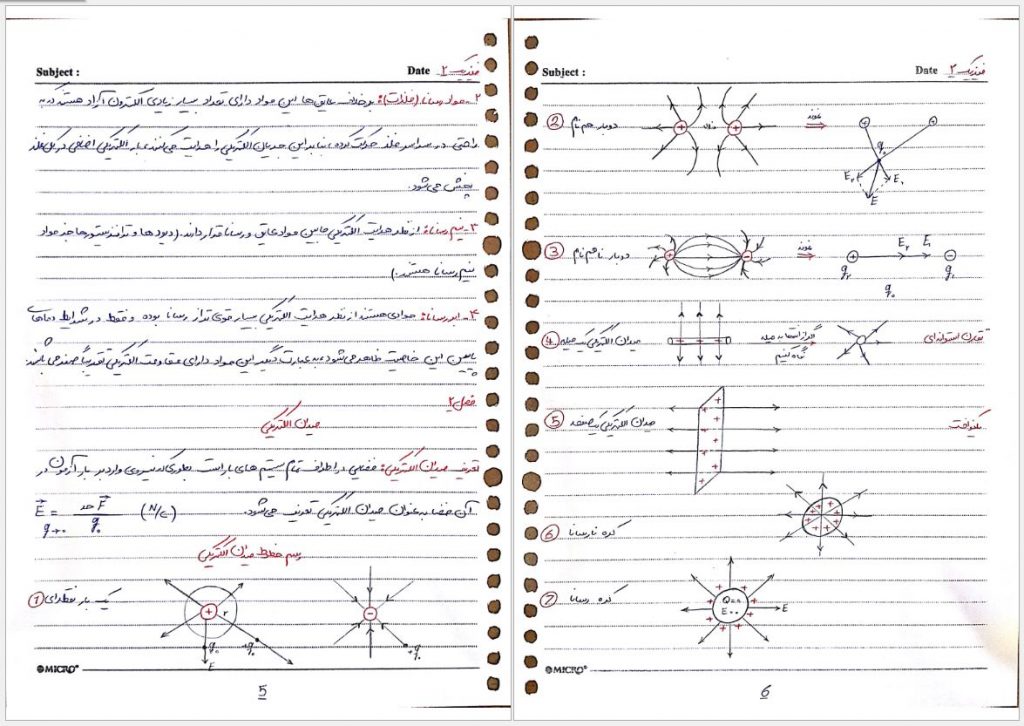 Subject :
Date
فیزیک ۲
۲- مواد رسانا (فلزات): برخلاف عایق ها این مواد دارای تعداد بسیار زیادی الکترون آزاد هستند که به
راحتی در سراسر فلز حرکت کرده، بنابراین جریان الکتریکی را هدایت می کنند. بار الکتریکی اضافی در یک فلز
پخش می شود.
۳- نیم رسانا: از نظر هدایت الکتریکی مابین مواد عایق و رسانا قرار دارند. (دیودها و ترانزیستورها جزء مواد
نیم رسانا هستند.)
۴- ابررسانا: موادی هستند از نظر هدایت الکتریکی بسیار قوی تر از رسانا بوده و فقط در شرایط دماهای
پایین این خاصیت ظاهر می شود به عبارت دیگر این مواد دارای مقاومت الکتریکی تقریباً صفر می باشند
فصل ۲
میدان الکتریکی
تعریف میدان الکتریکی: فضایی در اطراف تمام سیستم های باردار است بطوری که نیروی وارد بر بار آزمون در
آن فضا به عنوان میدان الکتریکی تعریف می شود.
E = حد F / q₀ (N/C)
q₀→۰
رسم خطوط میدان الکتریکی
① یک بار نقطه ای
+ r q₀ +q₀ E
− +q₀
MICRO
5
Subject :
Date
فیزیک ۲
② دو بار هم نام
q₀ E₂ E₁ E
③ دو بار نا هم نام
E₂ E₁
q₂ q₁
q₀
④ میدان الکتریکی یک میله
اگر از انتها به میله
نگاه کنیم
تقارن استوانه ای
⑤ میدان الکتریکی یک صفحه
یکنواخت
⑥ کره نارسانا
⑦ کره رسانا
Q=0
E=0
E
MICRO
6